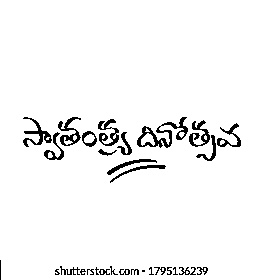 స్వాతంత్ర్య దినోత్సవ
www.shutterstock.com · 1795136239